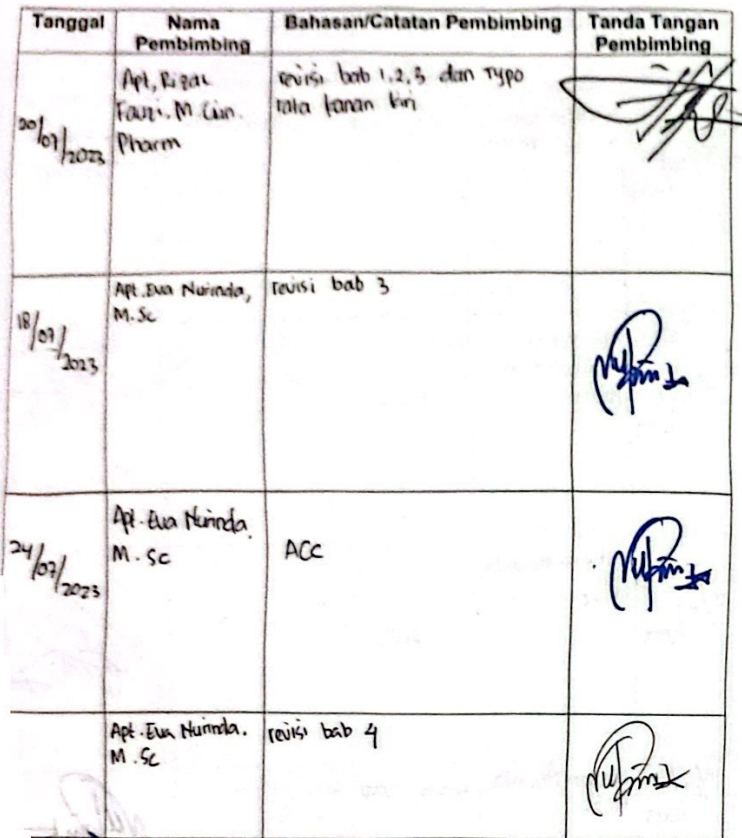 Tanggal
Nama Pembimbing
Bahasan/Catatan Pembimbing
Tanda Tangan Pembimbing
20/07/2023
Apt, Rizal
Fauzi. M. Clin.
Pharm
revisi bab 1,2,3 dan Typo
rata kanan kiri
18/07/2023
Apt. Eva Nurinda,
M.Sc
revisi bab 3
24/07/2023
Apt. Eva Nurinda.
M. Sc
ACC
Apt. Eva Nurinda.
M. Sc
revisi bab 4